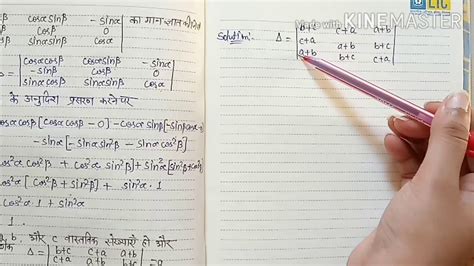 cosα cosβ cosα sinβ -sinα
-sinβ cosβ 0
sinα cosβ sinα sinβ cosα
का मान ज्ञात कीजिये
Δ = | cosα cosβ cosα sinβ -sinα |
| -sinβ cosβ 0 |
| sinα cosβ sinα sinβ cosα |
के अनुदिश प्रसरण करने पर
cosα cosβ [cosα cosβ - 0] - cosα sinβ [-sinβ cosα -
-sinα [-sinα sin²β - sinα cos²β]
cos²α cos²β + cos²α sin²β + sin²α [sin²β + cos²
cos²α [cos²β + sin²β] + sin²α · 1
cos²α · 1 + sin²α
1
a, b, और c वास्तविक संख्याएँ हो और
Δ = | b+c c+a a+b |
| c+a a+b b+c |
| a+b b+c c+a | = 0
Solution:- Δ = | b+c c+a a+b |
| c+a a+b b+c |
| a+b b+c c+a |
LIC
Made with KINEMASTER